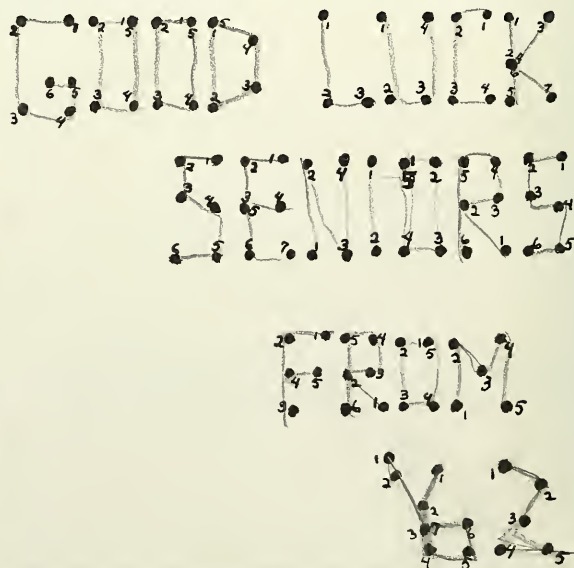 GOOD LUCK
SENIORS
FROM
'62